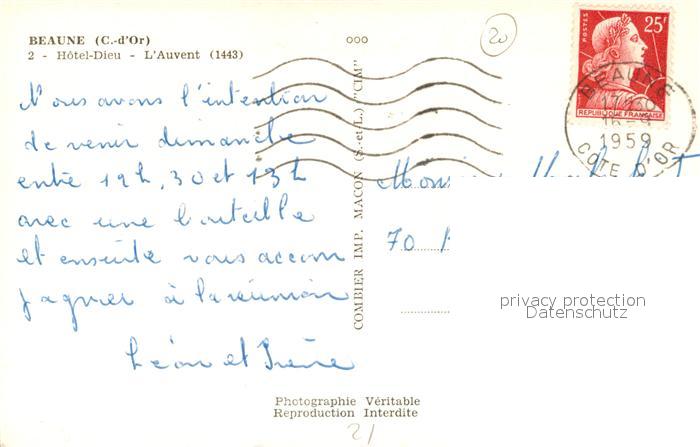 BEAUNE (C.-d'Or)
2 - Hôtel-Dieu - L'Auvent (1443)
ooo
20
POSTES
25F
REPUBLIQUE FRANÇAISE
BEAUNE
1959
CÔTE D'OR
Nous avons l'intention
de venir dimanche
entre 12h,30 et 13h
avec une bouteille
et ensuite vous accom
pagner à la réunion
Léon et Irène
COMBIER IMP. MACON (S.-et-L.) "CIM"
70
privacy protection
Datenschutz
Photographie Véritable
Reproduction Interdite
21